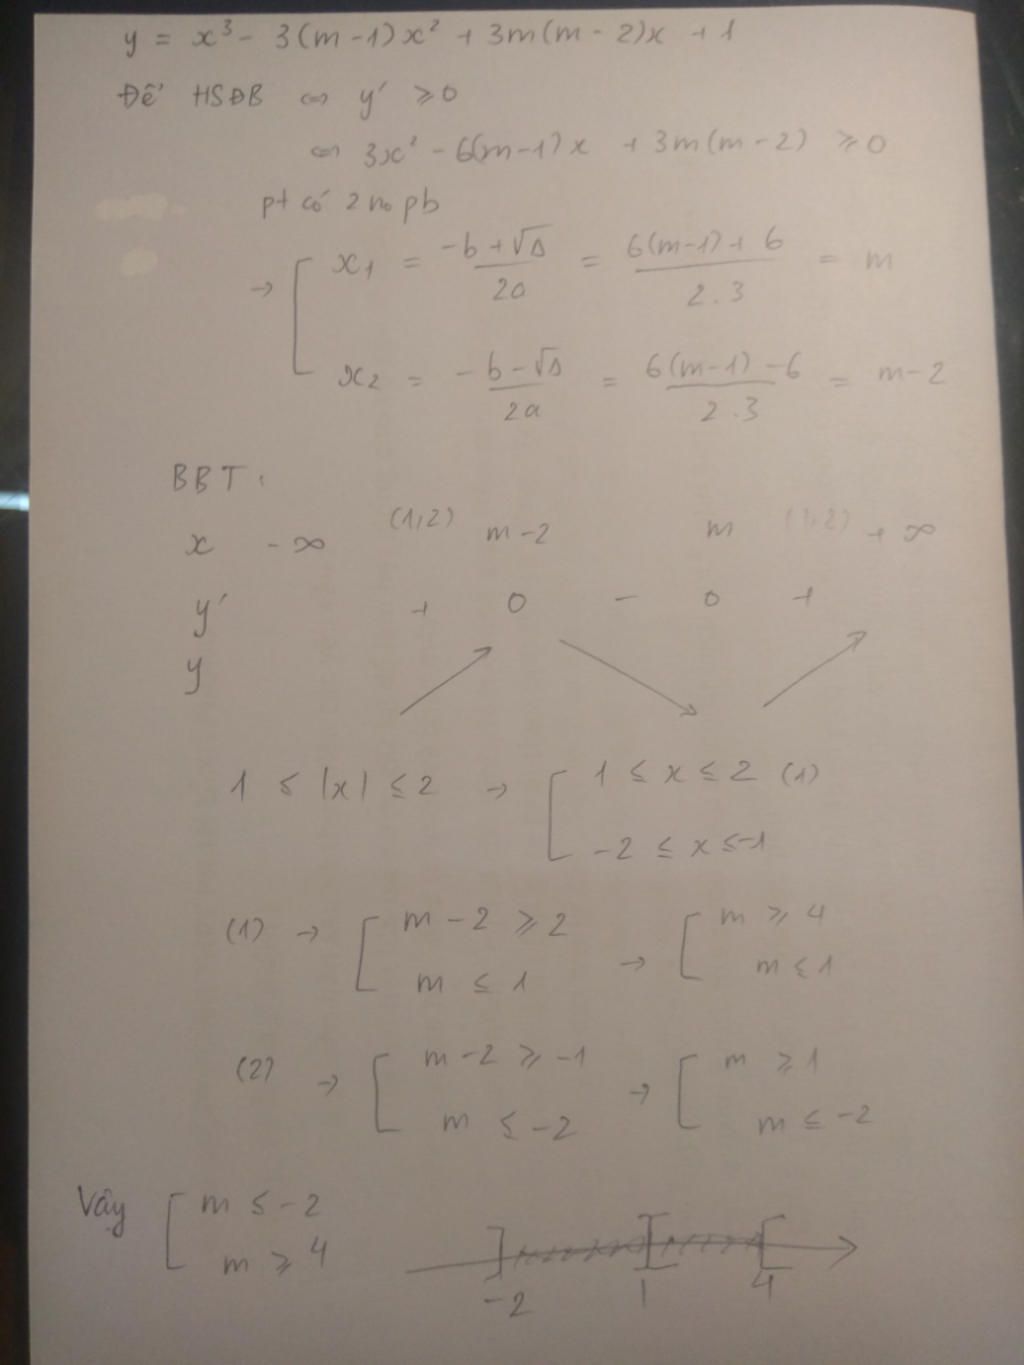 y = x³ - 3(m-1)x² + 3m(m-2)x + 1
Để HSĐB ⇔ y' ≥ 0
⇔ 3x² - 6(m-1)x + 3m(m-2) ≥ 0
pt có 2 no pb
→ [ x₁ = (-b + √Δ)/2a = (6(m-1) + 6)/2.3 = m
x₂ = (-b - √Δ)/2a = (6(m-1) - 6)/2.3 = m-2
BBT:
x -∞ (1,2) m-2 m (1,2) +∞
y' + 0 - 0 +
y ↗ ↘ ↗
1 ≤ |x| ≤ 2 → [ 1 ≤ x ≤ 2 (1)
-2 ≤ x ≤ -1
(1) → [ m - 2 ≥ 2 → [ m ≥ 4
m ≤ 1 m ≤ 1
(2) → [ m - 2 ≥ -1 → [ m ≥ 1
m ≤ -2 m ≤ -2
Vậy [ m ≤ -2
m ≥ 4
-2 1 4